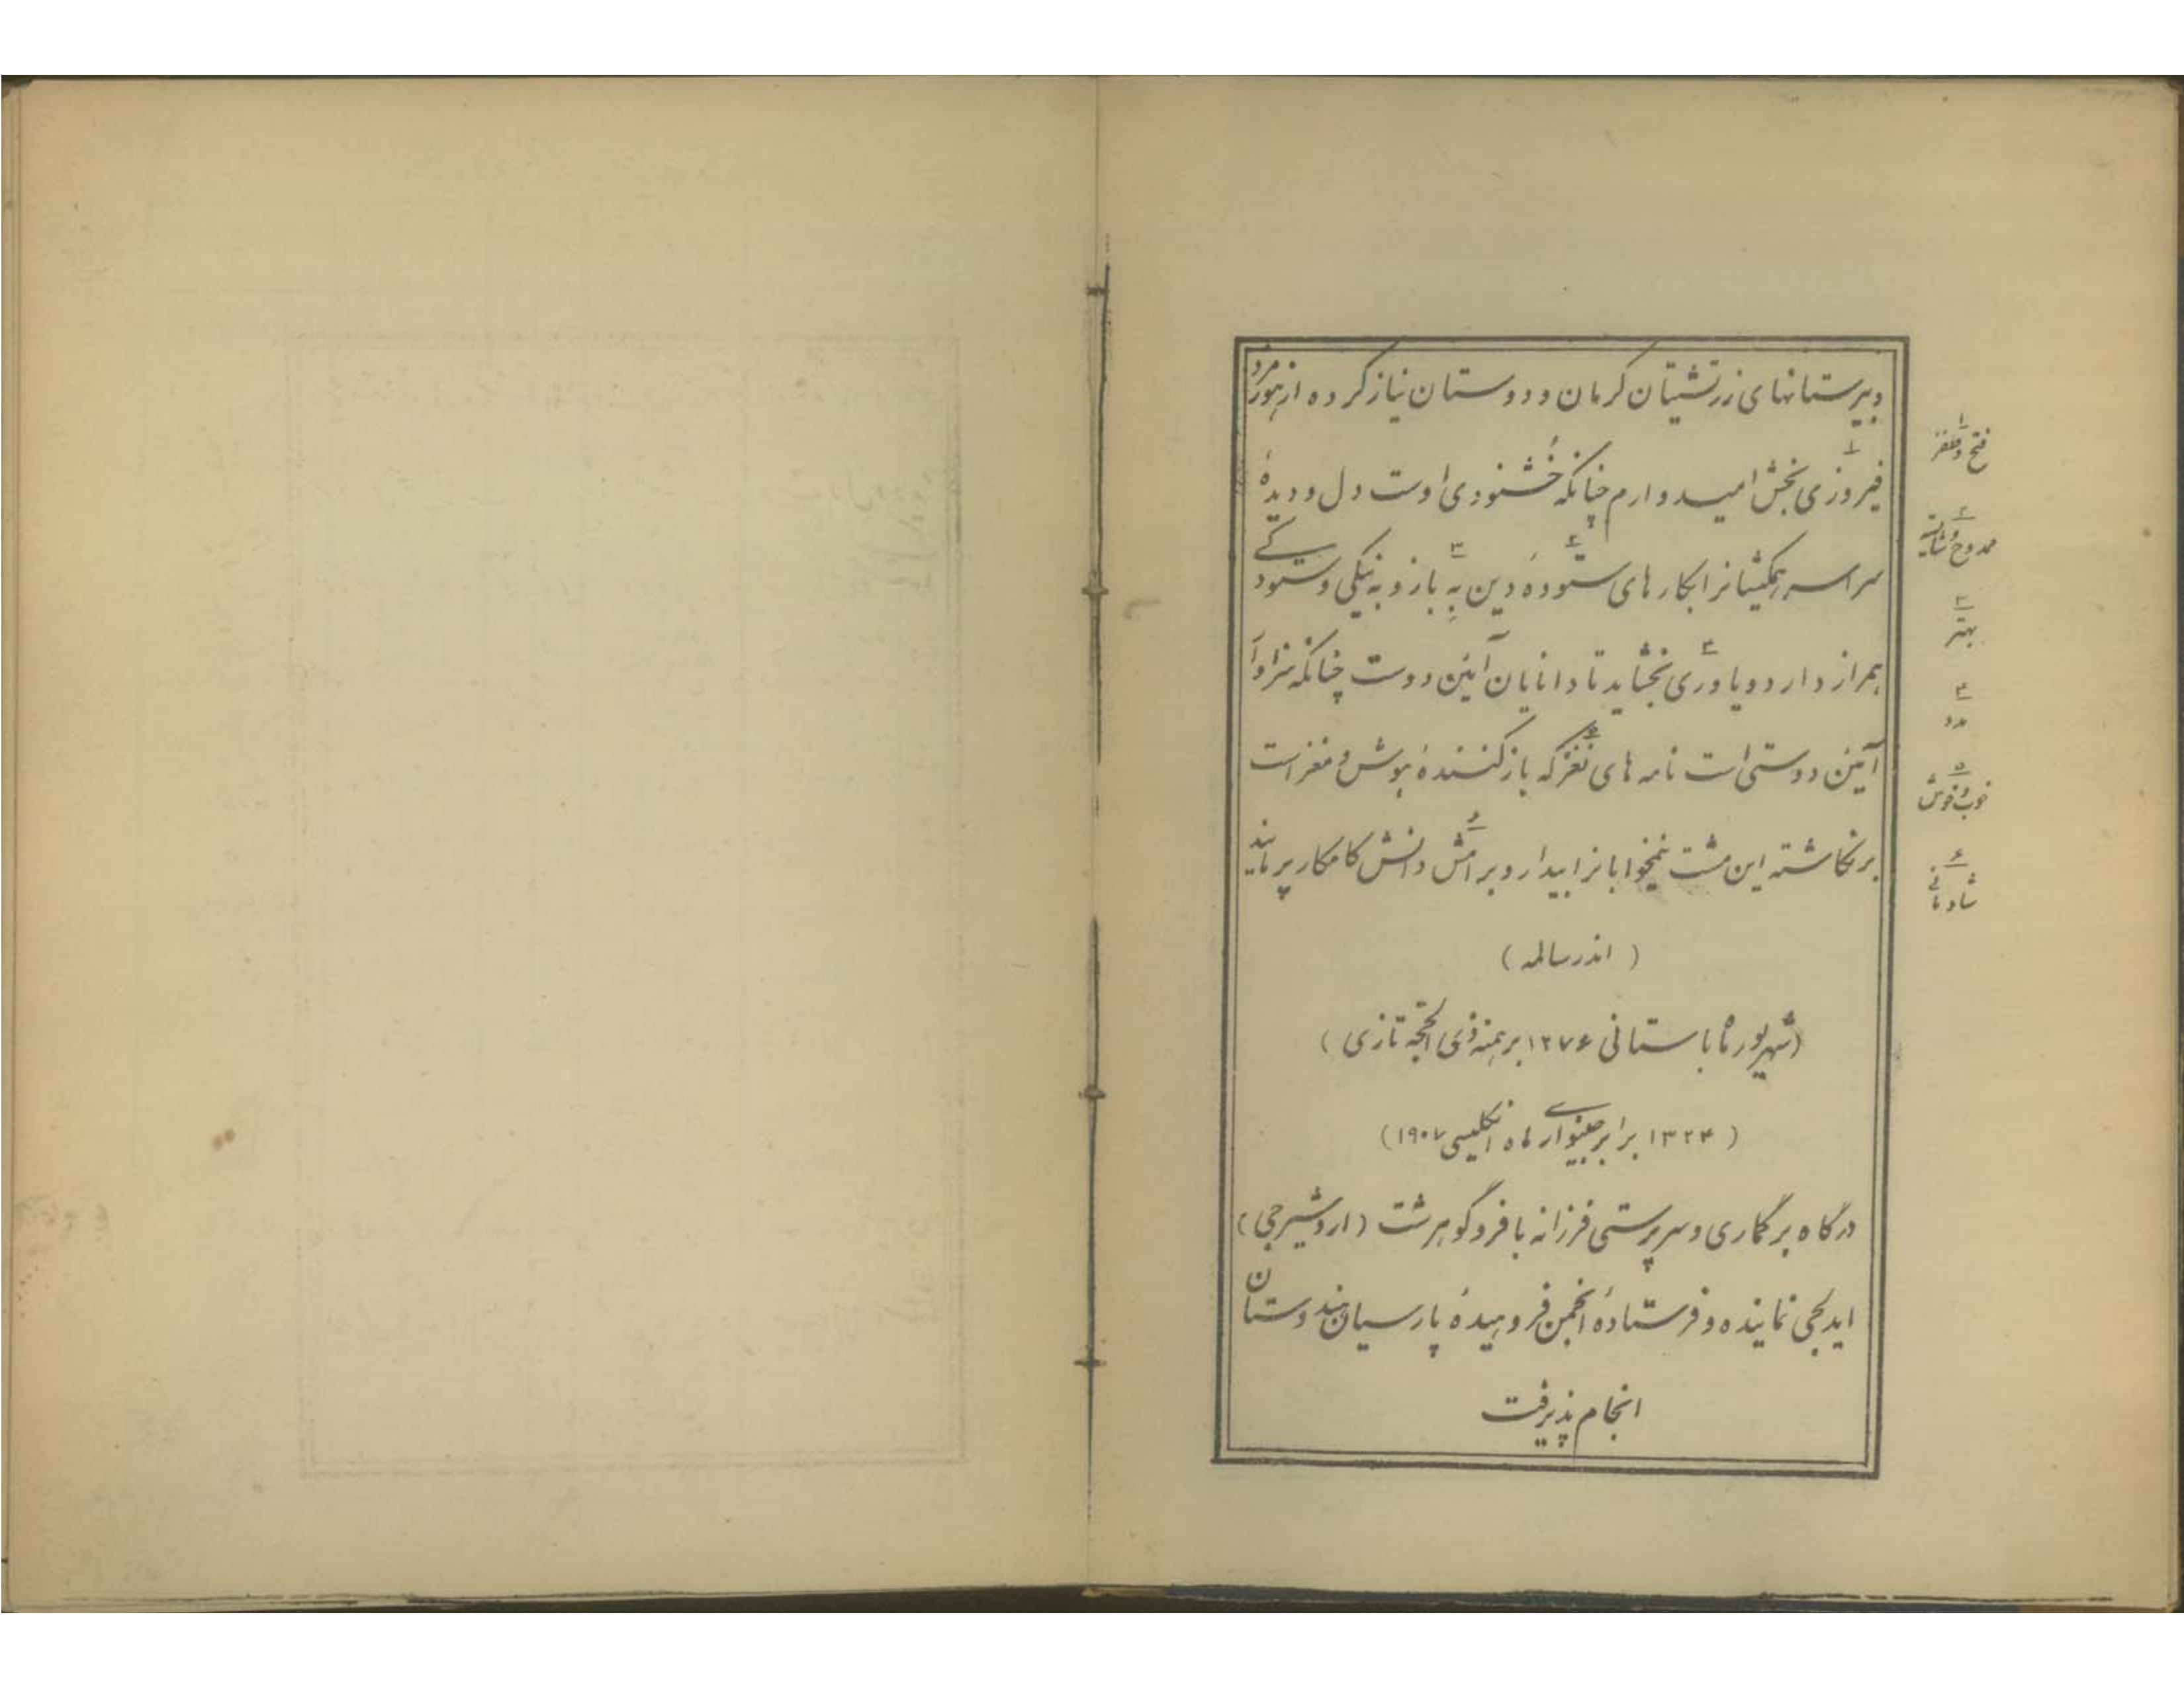 دبیرستانهای زرتشتیان کرمان و دوستان نیاز کرده از هورمزد
فیروزی بخش امیدوارم چنانکه خُشنودی اوست دل و دیدهٔ
سراسر همکیشانرا بکارهای ستودهٔ دین بِهِ باز و به نیکی و ستودگی
همراز دارد و یاوری بخشاید تا دانایان آئین دوست چنانکه سزاوار
آئین دوستی است نامه های نغز که باز کنندهٔ هوش و مغز است
بر نگاشته این مشت نیمخوابانرا بیدار و برامش دانش کامکار بر مایند
( اندر سالمه )
(شهریور ماه باستانی ۱۲۷۶ بر بهینه ذی الحجّه تازی )
( ۱۳۲۴ برابر جینواری ماه انگلیسی ۱۹۰۷)
درگاه برگماری و سرپرستی فرزانه با فر و گوهرشت (اردشیرجی)
ایدلجی نماینده و فرستادهٔ انجمن فروهیدهٔ پارسیان هندوستان
انجام پذیرفت
۱
فتح و ظفر
۲
ممدوح و شایسته
۳
بهتر
۴
مدد
۵
خوب و خوش
۶
شادمانی